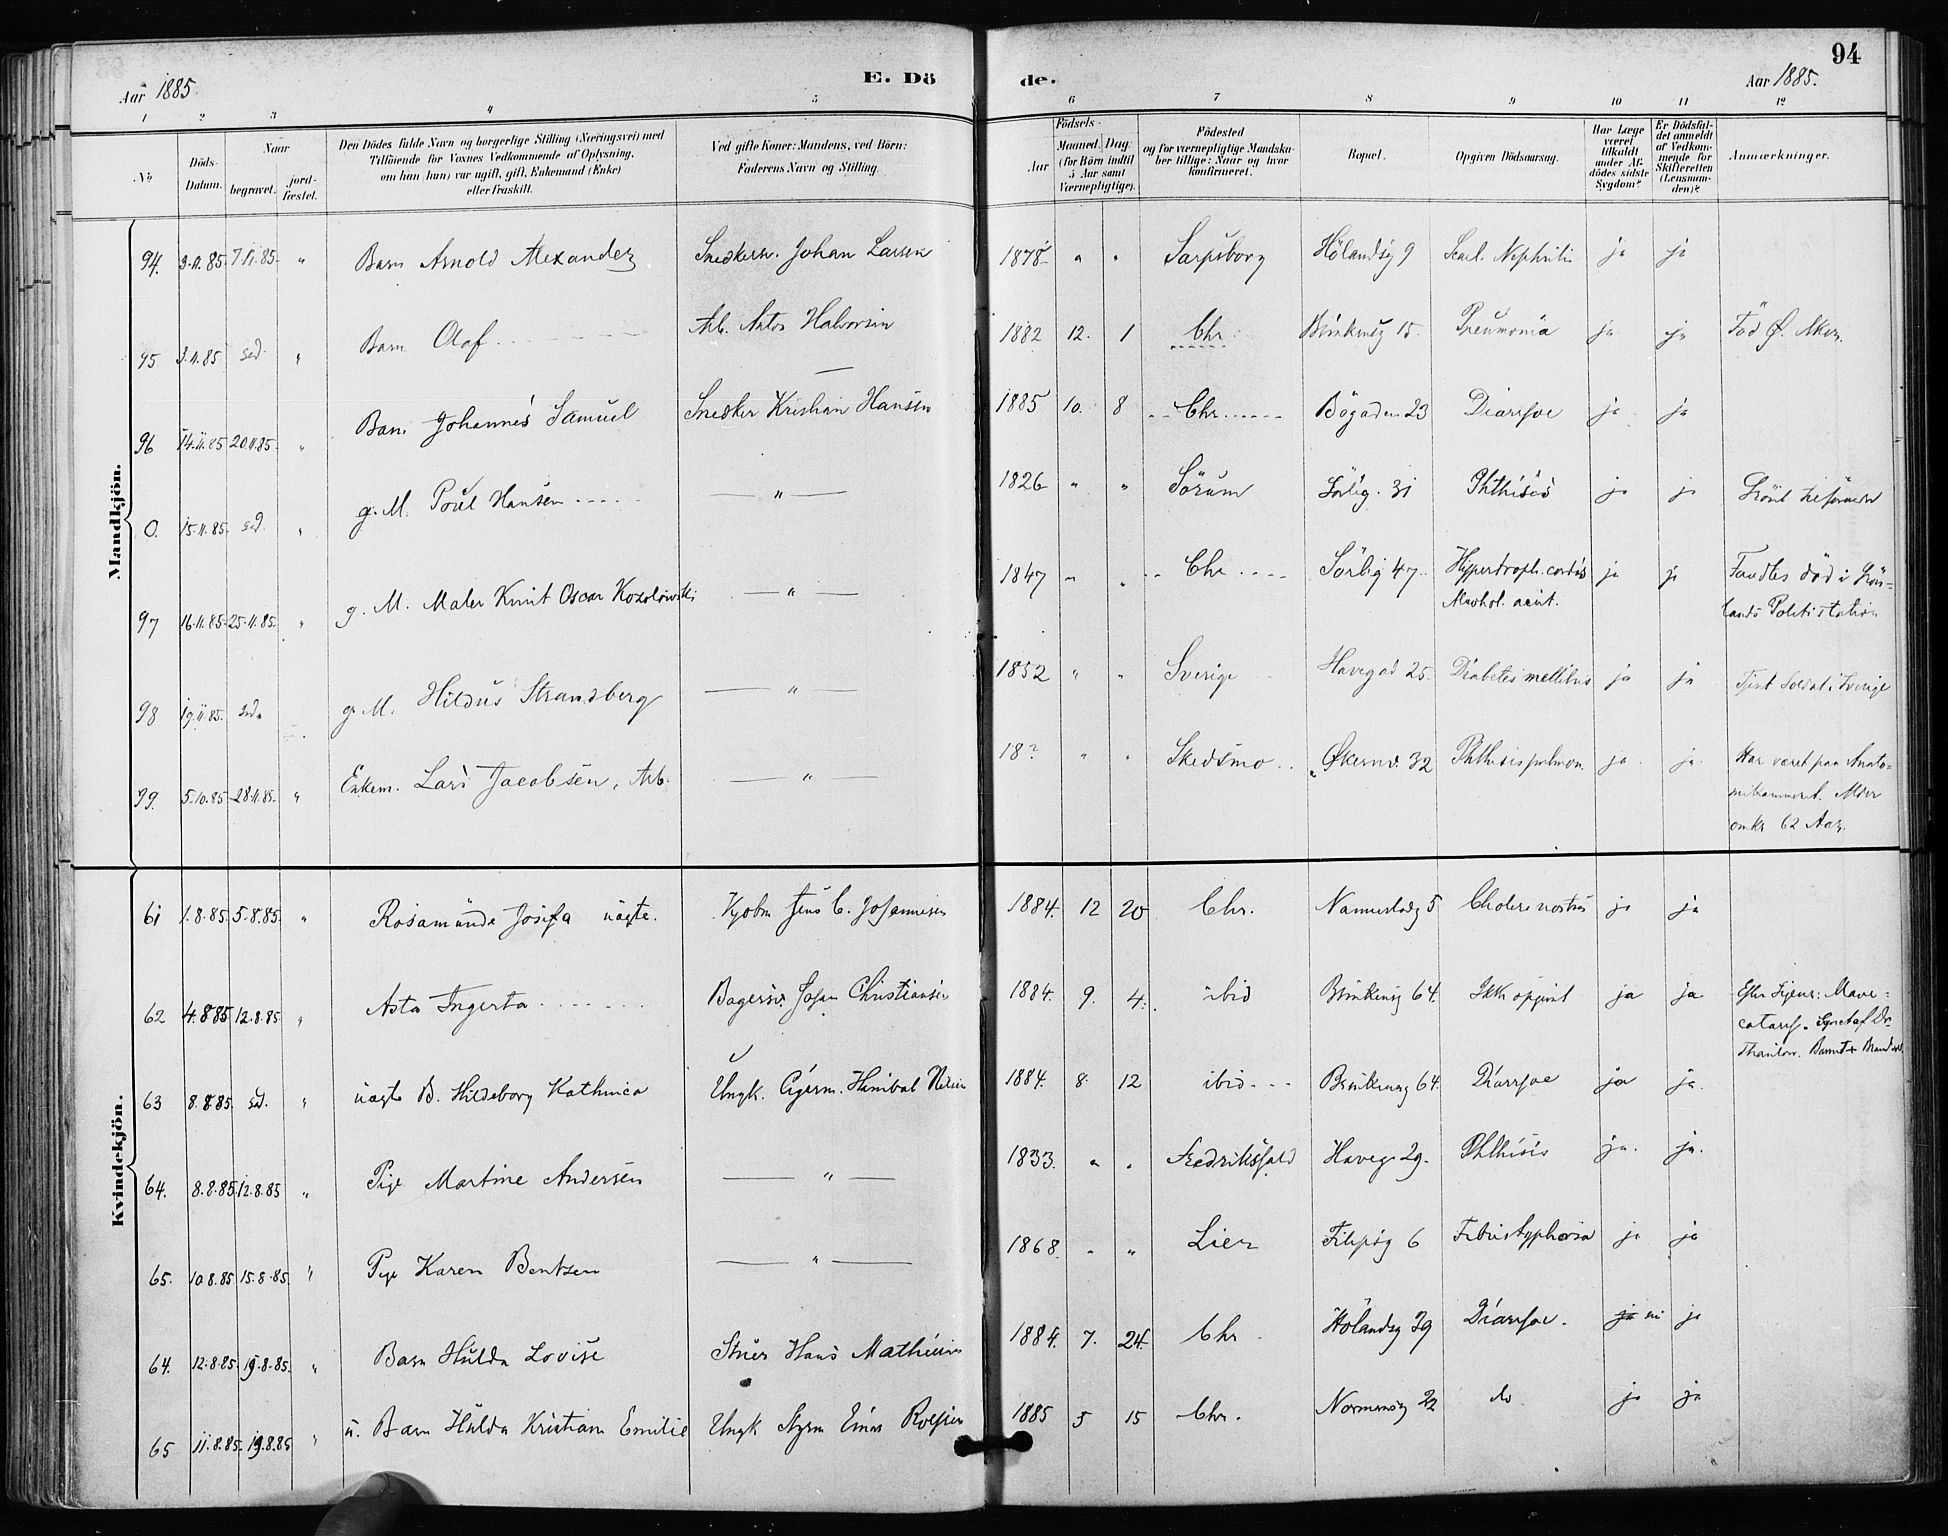 94
Aar 1885. E. Dö de. Aar 1885.
1 2 3 4 5 6 7 8 9 10 11 12
No
Döds-Datum.
Naar
begravet.
jord-fæstet.
Den Dödes fulde Navn og borgerlige Stilling (Næringsvei) med
Tilföiende for Voxnes Vedkommende af Oplysning,
om han (hun) var ugift, gift, Enkemand (Enke)
eller fraskilt.
Ved gifte Koner: Mandens, ved Börn:
Faderens Navn og Stilling.
Födsels-
Aar
Maaned. Dag.
(for Börn indtil
5 Aar samt
Værnepligtige).
Födested
og for værnepligtige Mandska-
ber tillige: Naar og hvor
konfirmeret.
Bopæl.
Opgiven Dödsaarsag.
Har Læge
været
tilkaldt
under Af-
dödes sidste
Sygdom?
Er Dödsfal-
det anmeldt
af Vedkom-
mende for
Skifteretten
(Lensman-
den)?
Anmærkninger.
Mandkjön.
94. 3.11.85. 7.11.85. " Barn Arnold Alexander Snedkersv. Johan Larsen 1878 " " Sarpsborg Hölandsg 9 Scarl. Nephritis ja ja
95 3.11.85 sed. " Barn Olof Arb. Anton Halvorsen 1882 12. 1 Chr. 15. Pneumonia ja ja Föd Ø. Aker.
96 14.11.85 20.11.85. " Barn Johannes Samuel Snedker Kristian Hansen 1885 10. 8 Chr. Bögaden 23 Diarrhoe ja ja
0. 15.11.85. sed. " g. M. Poul Hansen — " — 1826 " " Sörum Sörlig. 31 Phthisis ja ja
97 16.11.85. 25.11.85. " g. M. Maler Knut Oscar Kozolowski — " — 1847 " " Chr. Sörlig 47. Hypertroph. cordis ja ja Fandtes död i Grön-
Alcohol. acut. lands Politistation
98 19.11.85. sed. g. M. Hildus Strandberg — " 1852 " " Sverige Havegad 25. Diabetes mellitus ja ja Tjent Soldat i Sverige
99. 5.10.85 28.11.85. " Enkem. Lars Jacobsen, Arb. — " — 18? " " Skedsmo Økernv. 32 Phthisis pulmon. ja ja Har været paa Anato-
mikammeret. Alder
omkr 62 Aar.
Kvindekjön.
61 1.8.85. 5.8.85. " Rosamunde Josefa uægte. Kjöbm Jens C. Johannesen 1884. 12 20 Chr. 5 Cholera nostras ja ja
62 4.8.85 12.8.85 " Asta Ingerta Bagersv. Johan Christiansen 1884. 9. 4. ibid 64. Ikke opgivet ja ja
63 8.8.85. sed. " uægte B. Hildeborg Kathinca Ungk. Cigarm. Hanibal Nilsen 1884. 8. 12 ibid 64. Diarrhoe ja ja.
64. 8.8.85. 12.8.85 " Pige Martine Andersen — " — 1833. " " Fredrikshald Haveg. 29. Phthisis ja. ja.
65. 10.8.85. 15.8.85. " Pige Karen Bentsen — " — 1868. " " Lier Filipsg 6 Febris typhoisa ja ja
64. 12.8.85. 15.8.85. " Barn Hulda Lovise Hans 1884. 7. 24. Chr. Hölandsg 39 Diarrhoe. ja
65 11.8.85. 19.8.85 " u. Barn Hulda Kristiane Emilie Ungk Styrm Einar 1885 5 15 Chr. 22 do. ja ja